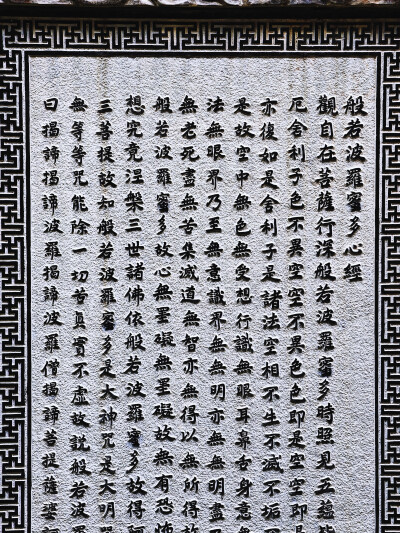 般若波羅蜜多心經
觀自在菩薩行深般若波羅蜜多時照見五蘊皆
厄舍利子色不異空空不異色色即是空空即是
亦復如是舍利子是諸法空相不生不滅不垢不
是故空中無色無受想行識無眼耳鼻舌身意無
法無眼界乃至無意識界無無明亦無無明盡乃
無老死盡無苦集滅道無智亦無得以無所得故
般若波羅蜜多故心無罣礙無罣礙故無有恐怖
想究竟涅槃三世諸佛依般若波羅蜜多故得阿
三菩提故知般若波羅蜜多是大神咒是大明咒
無等等咒能除一切苦真實不虛故說般若波羅
曰揭諦揭諦波羅揭諦波羅僧揭諦菩提薩婆訶